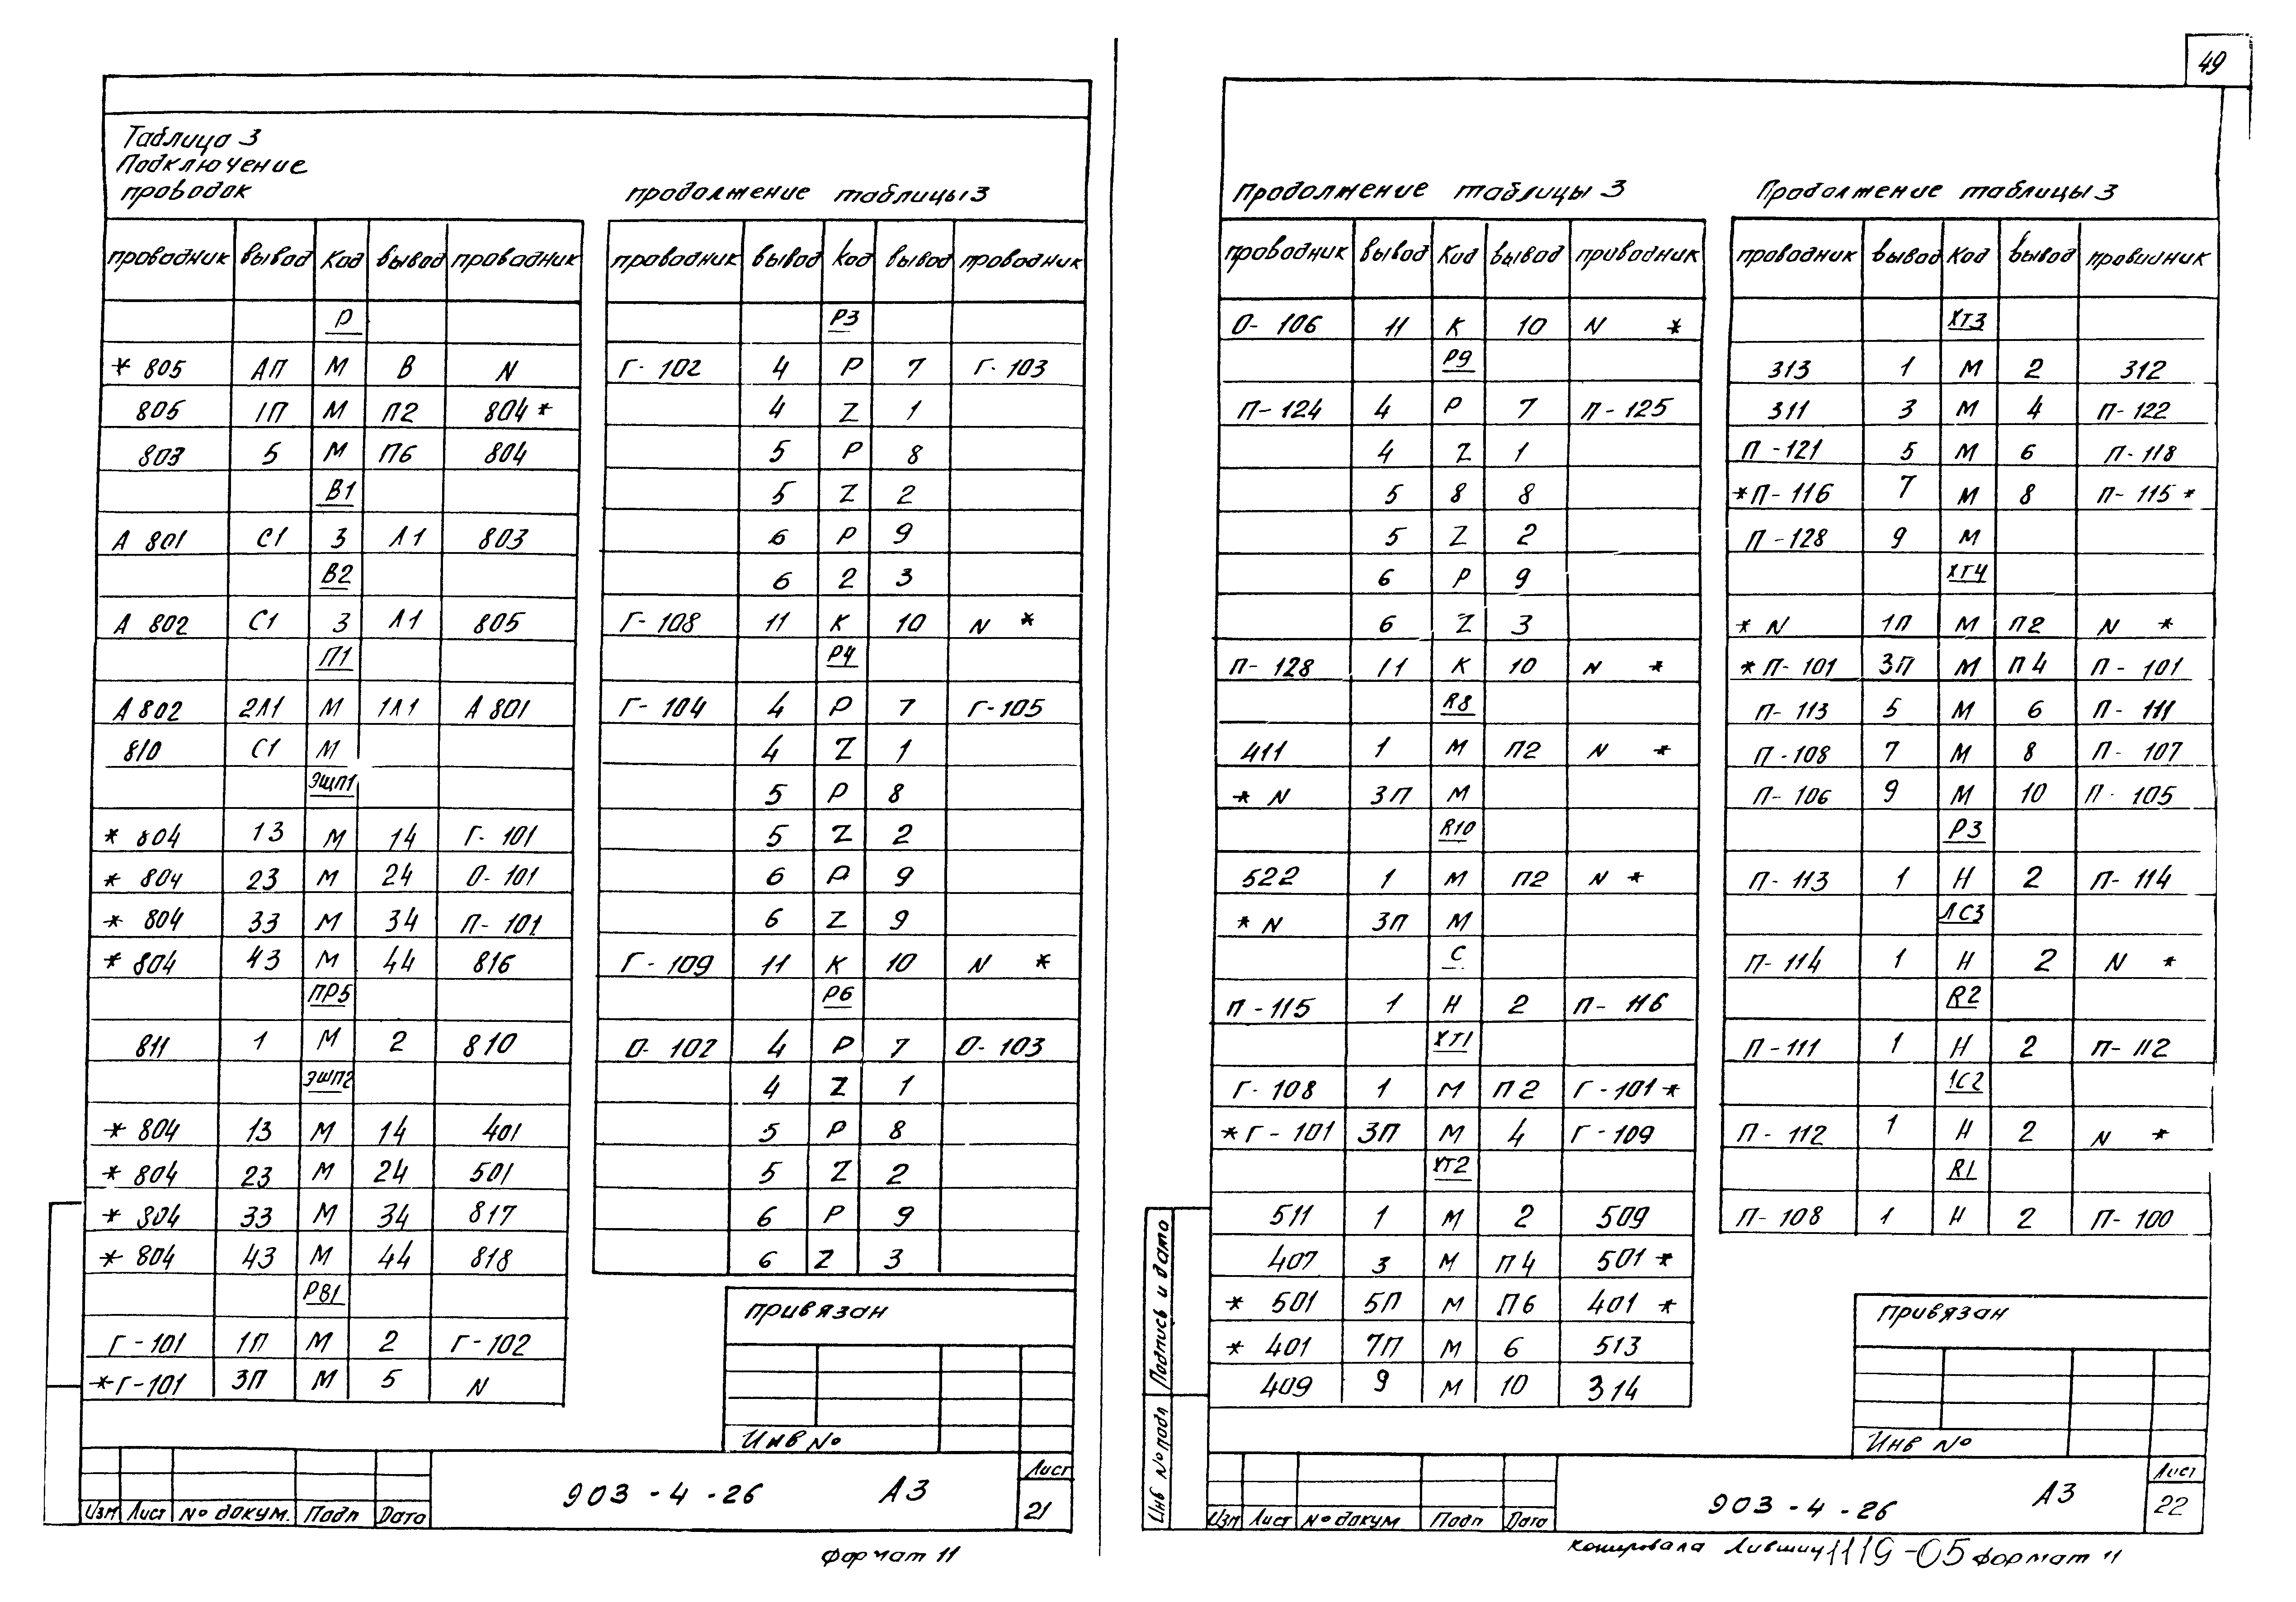 49
Таблица 3
Подключение
проводок
проводник вывод Код вывод проводник
Р
* 805 АП М В N
805 1П М П2 804 *
803 5 М П6 804
В1
А 801 С1 З Л1 803
В2
А 802 С1 З Л1 805
П1
А 802 2Л1 М 1Л1 А 801
810 С1 М
ЭЩП1
* 804 13 М 14 Г-101
* 804 23 М 24 О-101
* 804 33 М 34 П-101
* 804 43 М 44 816
ПР5
811 1 М 2 810
ЭШП2
* 804 13 М 14 401
* 804 23 М 24 501
* 804 33 М 34 817
* 804 43 М 44 818
РВ1
Г-101 1П М 2 Г-102
* Г-101 3П М 5 N
продолжение таблицы 3
проводник вывод код вывод проводник
Р3
Г-102 4 Р 7 Г-103
4 Z 1
5 Р 8
5 Z 2
6 Р 9
6 2 3
Г-108 11 К 10 N *
Р4
Г-104 4 Р 7 Г-105
4 Z 1
5 Р 8
5 Z 2
6 Р 9
6 Z 9
Г-109 11 К 10 N *
Р6
О-102 4 Р 7 О-103
4 Z 1
5 Р 8
5 Z 2
6 Р 9
6 Z 3
привязан
Инв №
Изм Лист № докум. Подп Дата
903-4-26 А3
Лист
21
формат 11
Продолжение таблицы 3
проводник вывод Код вывод проводник
О-106 11 К 10 N *
Р9
П-124 4 Р 7 П-125
4 Z 1
5 8 8
5 Z 2
6 Р 9
6 Z 3
П-128 11 К 10 N *
R8
411 1 М П2 N *
* N 3П М
R10
522 1 М П2 N *
* N 3П М
С
П-115 1 Н 2 П-116
ХТ1
Г-108 1 М П2 Г-101 *
* Г-101 3П М 4 Г-109
ХТ2
511 1 М 2 509
407 3 М П4 501 *
* 501 5П М П6 401 *
* 401 7П М 6 513
409 9 М 10 314
Продолжение таблицы 3
проводник вывод Код вывод проводник
ХТ3
313 1 М 2 312
311 3 М 4 П-122
П-121 5 М 6 П-118
* П-116 7 М 8 П-115 *
П-128 9 М
ХТ4
* N 1П М П2 N *
* П-101 3П М П4 П-101
П-113 5 М 6 П-111
П-108 7 М 8 П-107
П-106 9 М 10 П-105
Р3
П-113 1 Н 2 П-114
ЛС3
П-114 1 Н 2 N *
R2
П-111 1 Н 2 П-112
1С2
П-112 1 Н 2 N *
R1
П-108 1 Н 2 П-100
привязан
Инв №
Инв № подл Подпись и дата
Изм Лист № докум Подп Дата
903-4-26 А3
Лист
22
копировала Лившиц 1119-05 формат 11